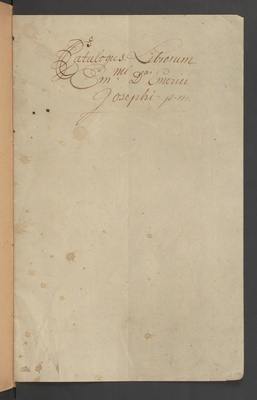 Catalogus Librorum
Em.mi D.ni Emerici
Josephi p.m.